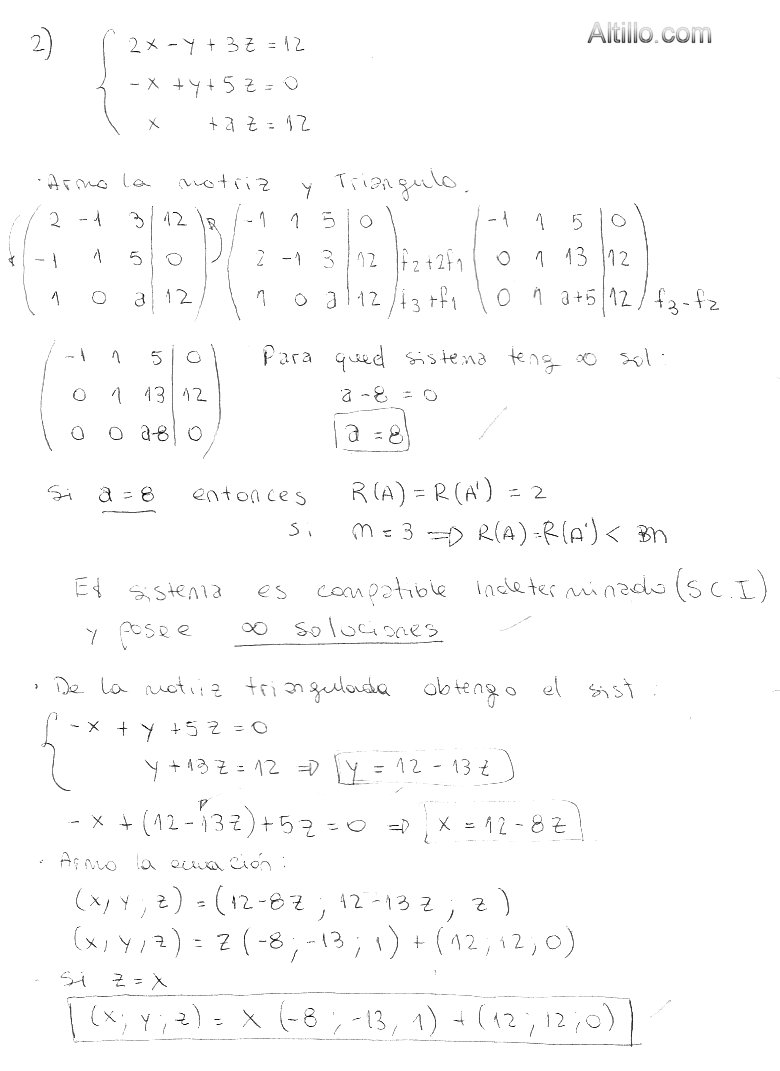 Altillo.com
2) { 2x - y + 3z = 12
-x + y + 5z = 0
x + az = 12
· Armo la matriz y Triangulo.
( 2 -1 3 | 12 ) ( -1 1 5 | 0 ) ( -1 1 5 | 0 )
( -1 1 5 | 0 ) ( 2 -1 3 | 12 ) f2+2f1 ( 0 1 13 | 12 )
( 1 0 a | 12 ) ( 1 0 a | 12 ) f3+f1 ( 0 1 a+5 | 12 ) f3-f2
( -1 1 5 | 0 ) Para qued sistema teng ∞ sol:
( 0 1 13 | 12 ) a-8 = 0
( 0 0 a-8 | 0 ) a = 8
Si a = 8 entonces R(A) = R(A') = 2
Si n = 3 => R(A) = R(A') < n
El sistema es compatible Indeterminado (S C.I)
y posee ∞ soluciones
· De la matriz triangulada obtengo el sist :
{ -x + y + 5z = 0
y + 13z = 12 => y = 12 - 13z
-x + (12-13z) + 5z = 0 => x = 12 - 8z
· Armo la ecuación :
(x, y, z) = (12-8z ; 12-13z ; z)
(x, y, z) = z (-8 ; -13 ; 1) + (12 ; 12 ; 0)
- Si z = x
(x; y; z) = x (-8 ; -13, 1) + (12 ; 12 ; 0)